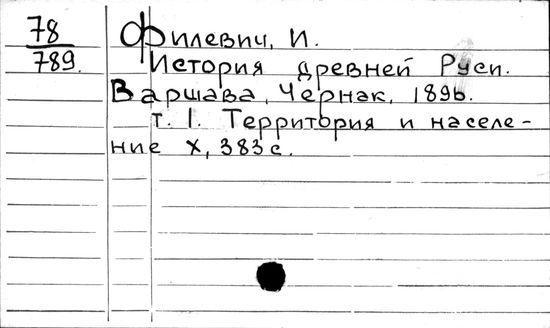 78
789.
Филевич, И.
История древней Руси.
Варшава, Чернак, 1896.
т. I. Территория и населе-
ние X, 383 с.